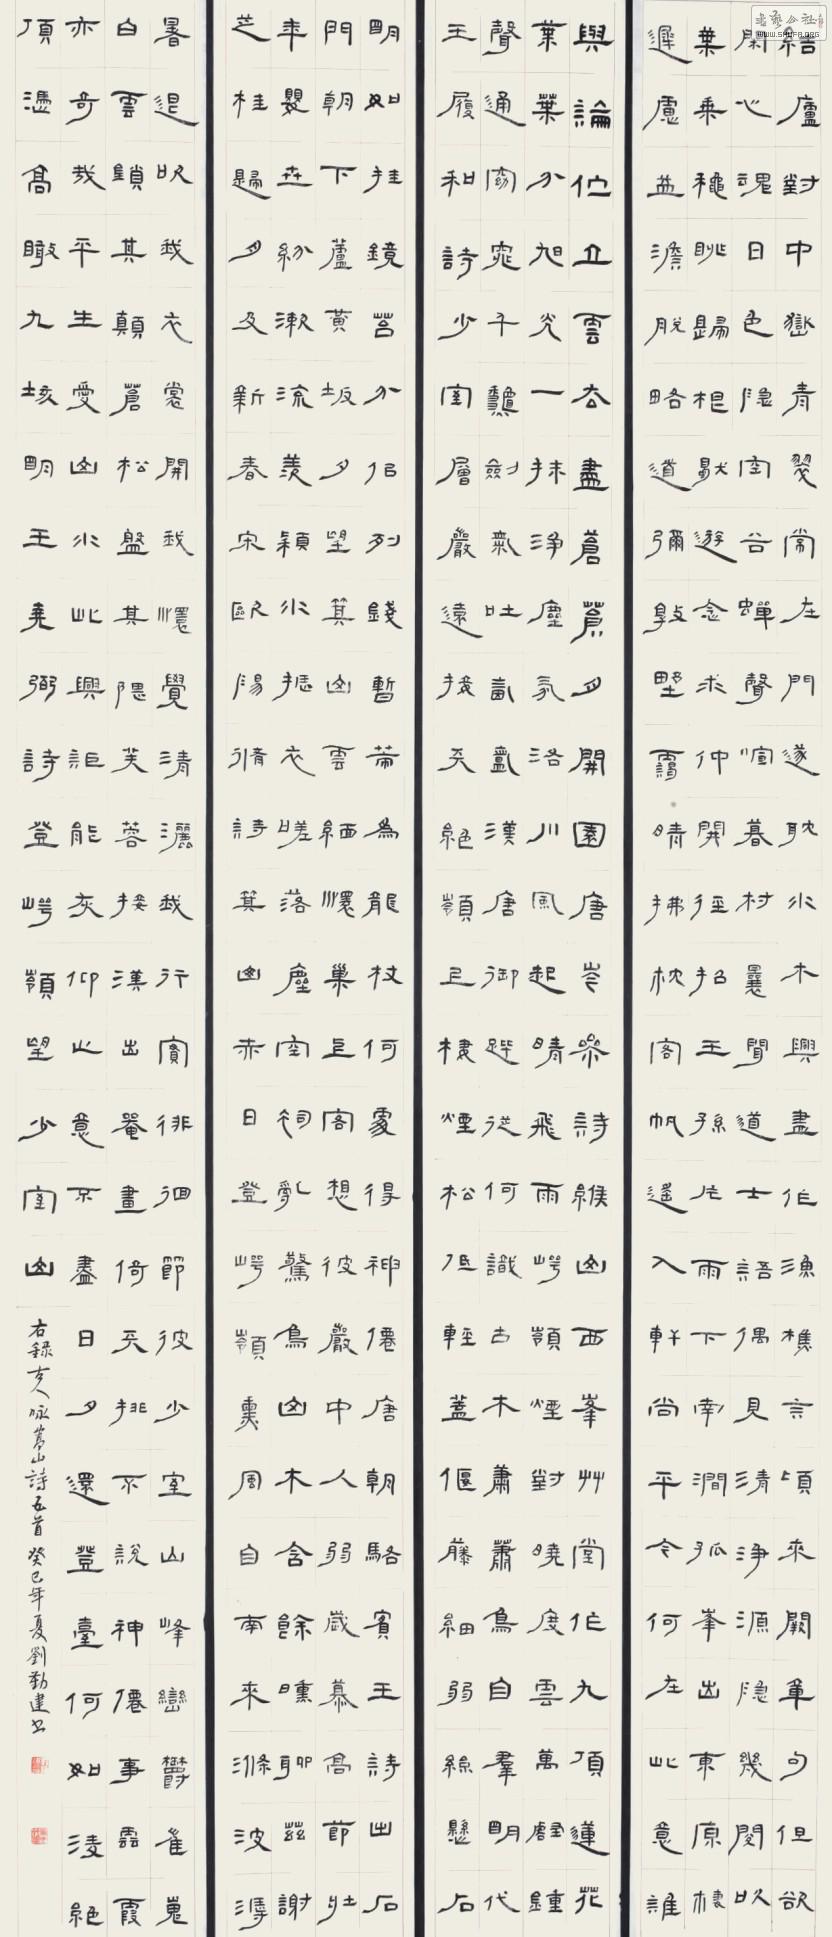 結廬對中嶽青翠常在門遂耽水木興盡作漁樵言頃來闕章句但欲
閑心魂日色隱空谷蟬聲喧暮村曩聞道士語偶見清淨源隱幾閱吹
葉乘穐眺歸根獸遊念求仲開徑招王孫片雨下南澗孤峯出東原棲
遲慮益澹脫略道彌敦野靄晴拂枕客帆遙入軒尚平今何在此意誰
與論佇立雲去盡蒼蒼月開園唐岑參詩緱山西峯艸堂作九頂蓮花
葉葉分旭光一抹淨塵氛洛川風起晴飛雨崿嶺煙對曉度雲萬壑鍾
聲通窈窕千龕劍氣吐氤氳漢唐御蹕從何識古木蕭蕭鳥自羣明代
王履和詩少室層巖遠接天絕嶺上棲煙松低輕蓋偃藤細弱絲懸石
明如挂鏡苔分似列錢暫策為龍杖何處得神僊唐朝駱賓王詩出石
門朝下蘆黃坂夕望箕山雲緬懷巢上客想彼巖中人弱歲慕高節壯
年嬰世紛漱流羨潁水振衣嗟落塵空祠亂驚鳥山木含餘曛聊茲謝
芝桂歸月及新春宋歐陽脩詩箕山赤日登崿嶺熏風自南來滌波潯
暑退吹我衣裳開我懷覺清灑我行實徘徊節彼少室山峰巒鬱崔嵬
白雲鎖其顛蒼松盤其隈芙蓉接漢出罨畫倚天排不說神僊事靈霞
亦奇哉平生愛山水此興詎能灰仰止意不盡日夕還登臺何如淩絕
頂憑高瞰九垓明王堯弼詩登崿嶺望少室山
右錄古人咏嵩山詩五首癸巳年夏劉勤建書
书艺公社
WWW.SHUFA.ORG